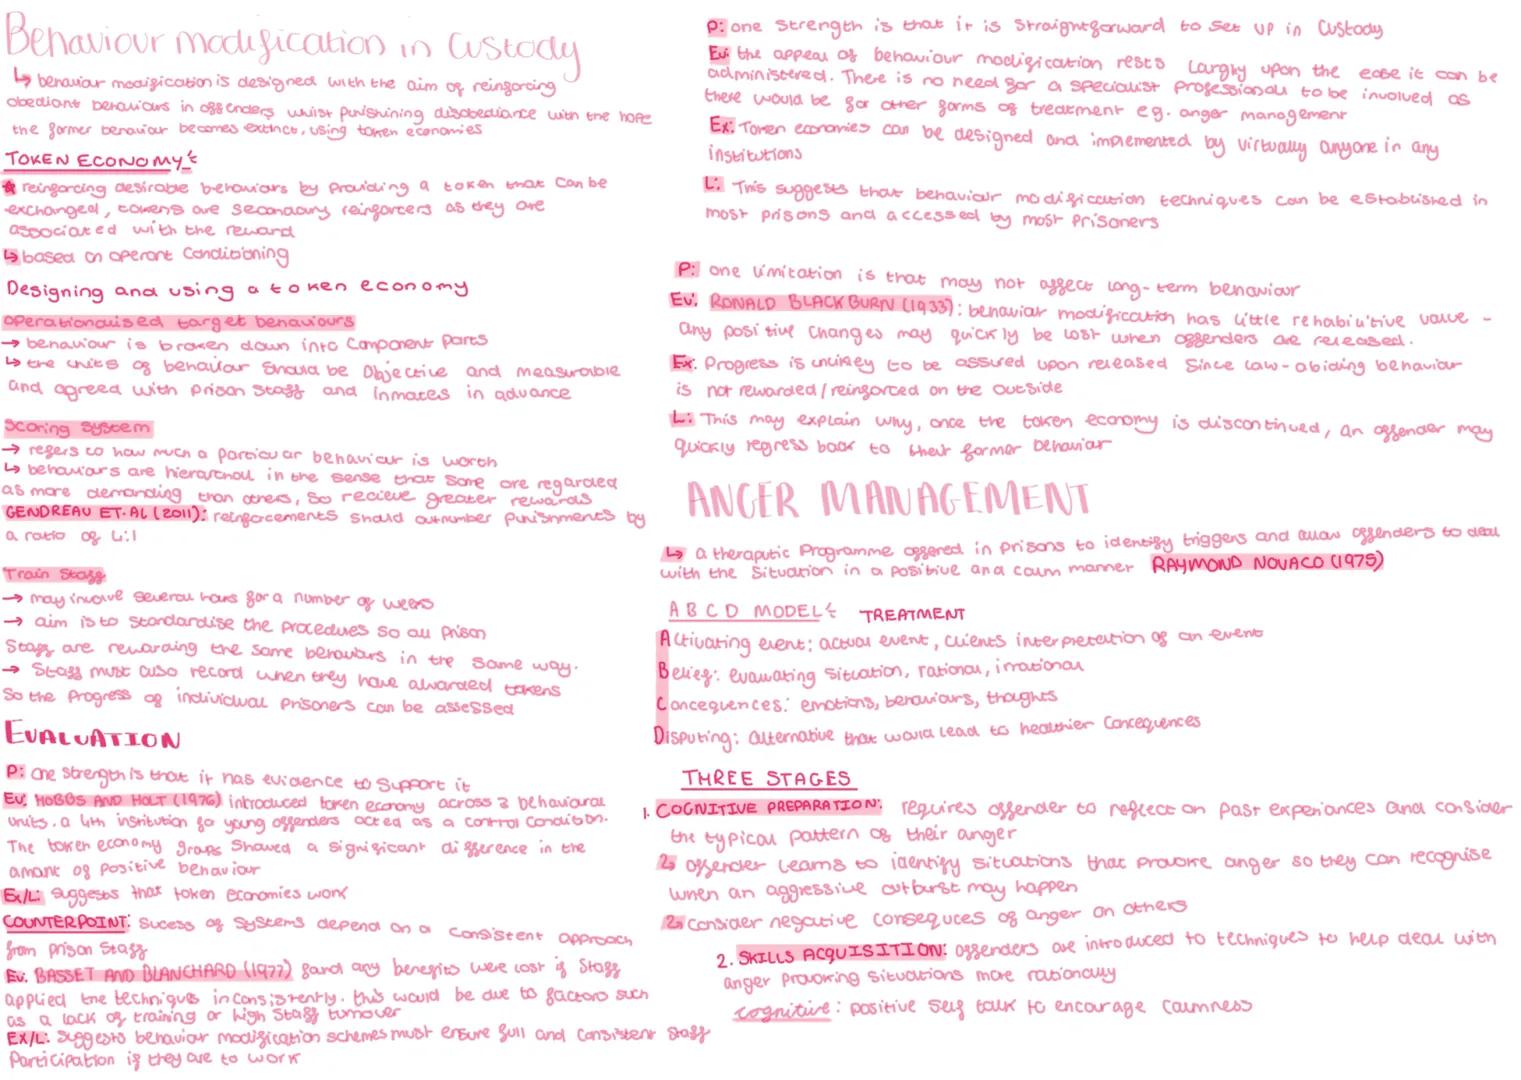 Behaviour modification in Custody
↳ behaviour modification is designed with the aim of reinforcing
obediant behaviours in offenders whilst punishining disobediance with the hope
the former behaviour becomes extinct, using token economies
TOKEN ECONOMY:
★ reinforcing desirable behaviours by providing a token that can be
exchanged, tokens are secondary reinforcers as they are
associated with the reward
↳ based on operant conditioning
Designing and using a token economy
operationalised target behaviours
→ behaviour is broken down into component parts
↳ the units of behaviour should be objective and measurable
and agreed with prison staff and inmates in advance
Scoring System
→ refers to how much a particular behaviour is worth
↳ behaviours are hierarchal in the sense that some are regarded
as more demanding than others, so recieve greater rewards
GENDREAU ET. AL (2011): reinforcements should outnumber punishments by
a ratio of 4:1
Train Staff
→ may involve several hours for a number of weeks
→ aim is to standardise the procedures so all prison
Staff are rewarding the same behaviours in the same way.
→ Staff must also record when they have alwarded tokens
So the progress of individual prisoners can be assessed
EVALUATION
P: one strength is that it has evidence to support it
Ev: HOBBS AND HOLT (1976) introduced token economy across 3 behavioural
units. a 4th institution for young offenders acted as a control condition.
The token economy groups showed a significant difference in the
amount of positive behaviour
Ex/L: suggests that token economies work
COUNTERPOINT: Sucess of systems depend on a consistent approach
from prison staff
Ev: BASSET AND BLANCHARD (1977) found any benefits were lost if staff
applied the techniques inconsistently. this would be due to factors such
as a lack of training or high staff turnover
Ex/L: Suggests behaviour modification schemes must ensure full and consistent staff
Participation if they are to work
P: one strength is that it is straightforward to set up in custody
Ev: the appeal of behaviour modification rests largly upon the ease it can be
administered. There is no need for a specialist professional to be involved as
there would be for other forms of treatment eg. anger management
Ex: Token economies can be designed and implemented by virtually anyone in any
institutions
L: This suggests that behaviour modification techniques can be established in
most prisons and accessed by most prisoners
P: one limitation is that may not affect long-term behaviour
Ev: RONALD BLACKBURN (1933): behaviour modification has little rehabilitive value -
any positive changes may quickly be lost when offenders are released.
Ex: Progress is unlikey to be assured upon released since law-abiding behaviour
is not rewarded/reinforced on the outside
L: This may explain why, once the token economy is discontinued, an offender may
quickly regress back to their former behaviour
ANGER MANAGEMENT
↳ a theraputic programme offered in prisons to identify triggers and allow offenders to deal
with the situation in a positive and calm manner RAYMOND NOVACO (1975)
ABCD MODEL: TREATMENT
Activating event: actual event, clients interpretation of an event
Belief: evaluating situation, rational, irrational
Concequences: emotions, behaviours, thoughts
Disputing: alternative that would lead to healthier concequences
THREE STAGES
1. COGNITIVE PREPARATION: requires offender to reflect on past experiances and consider
the typical pattern of their anger
↳ offender learns to identify situations that provoke anger so they can recognise
when an aggressive outburst may happen
↳ consider negative consequces of anger on others
2. SKILLS ACQUISITION: offenders are introduced to techniques to help deal with
anger provoking situations more rationally
cognitive: positive self talk to encourage calmness